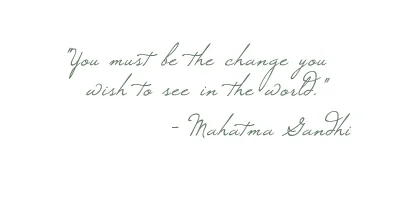 "You must be the change you
wish to see in the world."
- Mahatma Gandhi